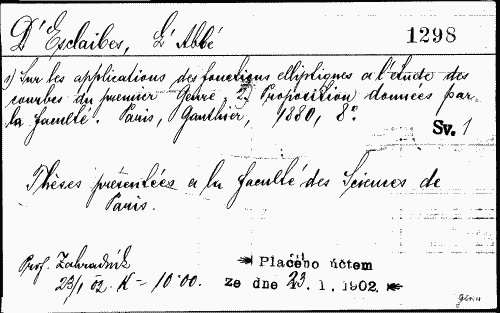 D'Esclaibes, L'Abbé
1298
1) Sur les applications des fonctions elliptiques a l'étude des
courbes du premier Genre 2) Proposition données par
la faculté. Paris, Gauthier, 1880, 8°.
Sv. 1
Thèses présentées a la faculté des Sciences de
Paris.
Prof. Zahradník
23/1 02. K – 10·00.
Placeno účtem
ze dne 23. 1. 1902.